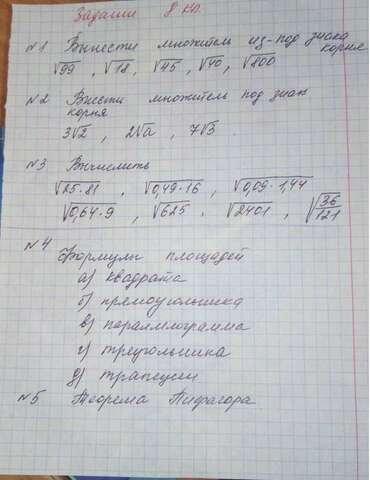 Задания 8 кл.
№1 Вынести множитель из-под знака
корня
√99 , √18, √45, √40, √800
№2 Внести множитель под знак
корня
3√2 , 2√a , 7√3 .
№3 Вычислить
√25·81 , √0,49·16 , √0,09·1,44
√0,64·9 , √625 , √2401 , √36/121
№4
Формулы площадей
а) квадрата
б) прямоугольника
в) параллелограмма
г) треугольника
д) трапеции
№5 Теорема Пифагора